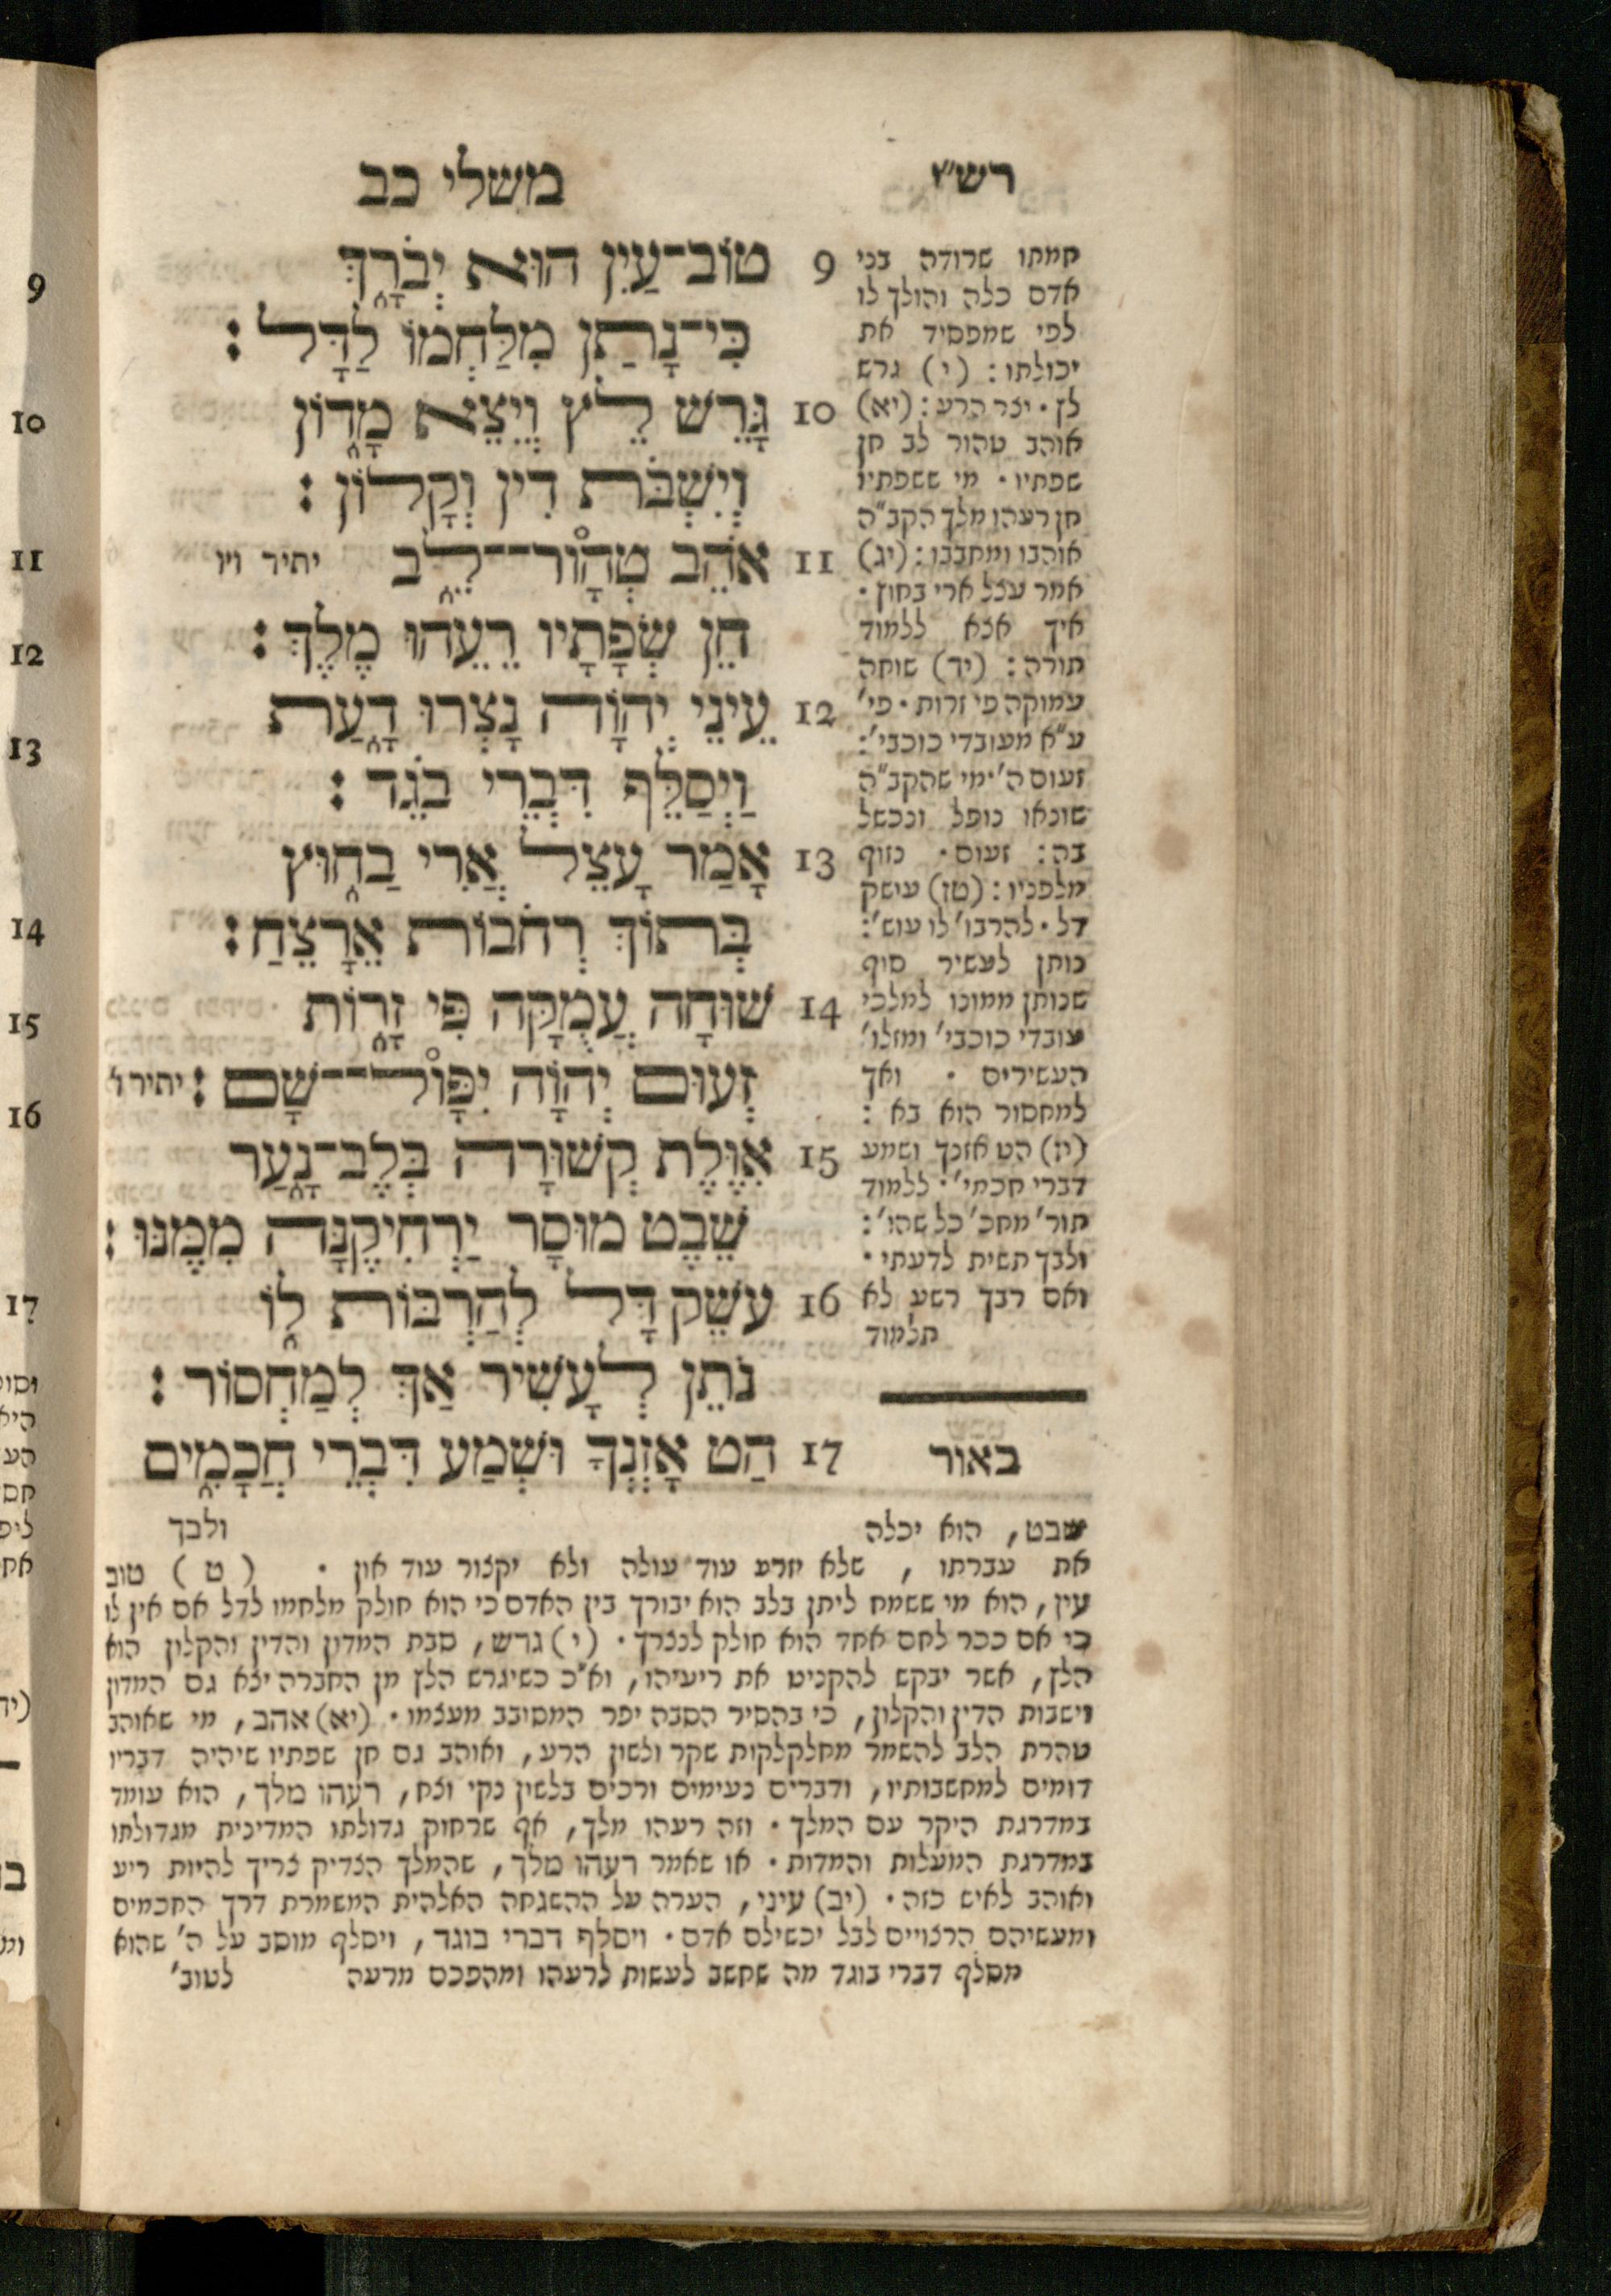 משלי כב
רש"י
9 טוֹב־עַיִן הוּא יְבֹרָ֑ךְ
כִּי־נָתַן מִלַּחְמוֹ לַדָּל:
10 גָּרֵשׁ לֵץ וְיֵצֵא מָד֑וֹן
וְיִשְׁבֹּת דִּין וְקָלוֹן:
11 אֹהֵב טְהָוֹר־לֵ֑ב יתיר ויו
חֵן שְׂפָתָיו רֵעֵהוּ מֶלֶךְ:
12 עֵינֵי יְהוָֹה נָצְרוּ דָ֑עַת
וַיְסַלֵּף דִּבְרֵי בֹגֵד:
13 אָמַר עָצֵל אֲרִי בַח֑וּץ
בְּתוֹךְ רְחֹבוֹת אֵרָצֵחַ:
14 שׁוּחָה עֲמֻקָּה פִּי זָר֑וֹת
זְעוּם יְהוָֹה יִפָּוֹל־שָׁם: יתיר ו'
15 אִוֶּלֶת קְשׁוּרָה בְּלֶב־נָ֑עַר
שֵׁבֶט מוּסָר יַרְחִיקֶנָּה מִמֶּנּוּ:
16 עֹשֵׁק דָּל לְהַרְבּוֹת ל֑וֹ
נֹתֵן לְעָשִׁיר אַךְ לְמַחְסוֹר:
17 הַט אָזְנְךָ וּשְׁמַע דִּבְרֵי חֲכָמִ֑ים
ולבך
חמתו שרודה בבי
אדם כלה והולך לו
לפי שמפסיד את
יכולתו: (י) גרש
לץ. יצר הרע: (יא)
אוהב טהור לב חן
שפתיו. מי ששפתיו
חן רעהו מלך הקב"ה
אוהבו ומחבבו: (יג)
אמר עצל ארי בחוץ.
איך אצא ללמוד
תורה: (יד) שוחה
עמוקה פי זרות. פי'
ע"א מעובדי כוכבי':
זעום ה' מי שהקב"ה
שונאו נופל ונכשל
בה: זעום. נזוף
מלפניו: (טז) עושק
דל. להרבו' לו עוש':
נותן לעשיר סוף
שנותן ממונו למלכי
עובדי כוכבי' ומזלו'
העשירים. ואך
למחסור הוא בא:
(יז) הט אזנך ושמע
דברי חכמי'. ללמוד
תור' מחכ' כל שהו':
ולבך תשית לדעתי.
ואם רבך רשע לא
תלמוד
באור
שבט, הוא יכלה
את עברתו, שלא יזרע עוד עולה ולא יקצור עוד און. (ט) טוב
עין, הוא מי ששמח ליתן בלב הוא יבורך בין האדם כי הוא חולק מלחמו לדל אם אין לו
כי אם ככר לחם אחד הוא חולק לנצרך. (י) גרש, סבת המדון והדין והקלון הוא
הלץ, אשר יבקש להקניט את ריעיהו, וא"כ כשיגרש הלץ מן החברה יצא גם המדון
וישבות הדין והקלון, כי בהסיר הסבה יפר המסובב מעצמו. (יא) אהב, מי שאוהב
טהרת הלב להשמר מחלקלקות שקר ולשון הרע, ואוהב גם חן שפתיו שיהיה דבריו
דומים למחשבותיו, ודברים נעימים ורכים בלשון נקי וצח, רעהו מלך, הוא עומד
במדרגת היקר עם המלך. וזה רעהו מלך, אף שרחוק גדולתו המדינית מגדולתו
במדרגת המעלות והמדות. או שאמר רעהו מלך, שהמלך הצדיק צריך להיות ריע
ואוהב לאיש כזה. (יב) עיני, הערה על ההשגחה האלהית המשמרת דרך החכמים
ומעשיהם הרצויים לבל יכשילם אדם. ויסלף דברי בוגד, ויסלף מוסב על ה' שהוא
מסלף דברי בוגד מה שחשב לעשות לרעהו ומהפכם מרעה לטוב'
9
10
11
12
13
14
15
16
17